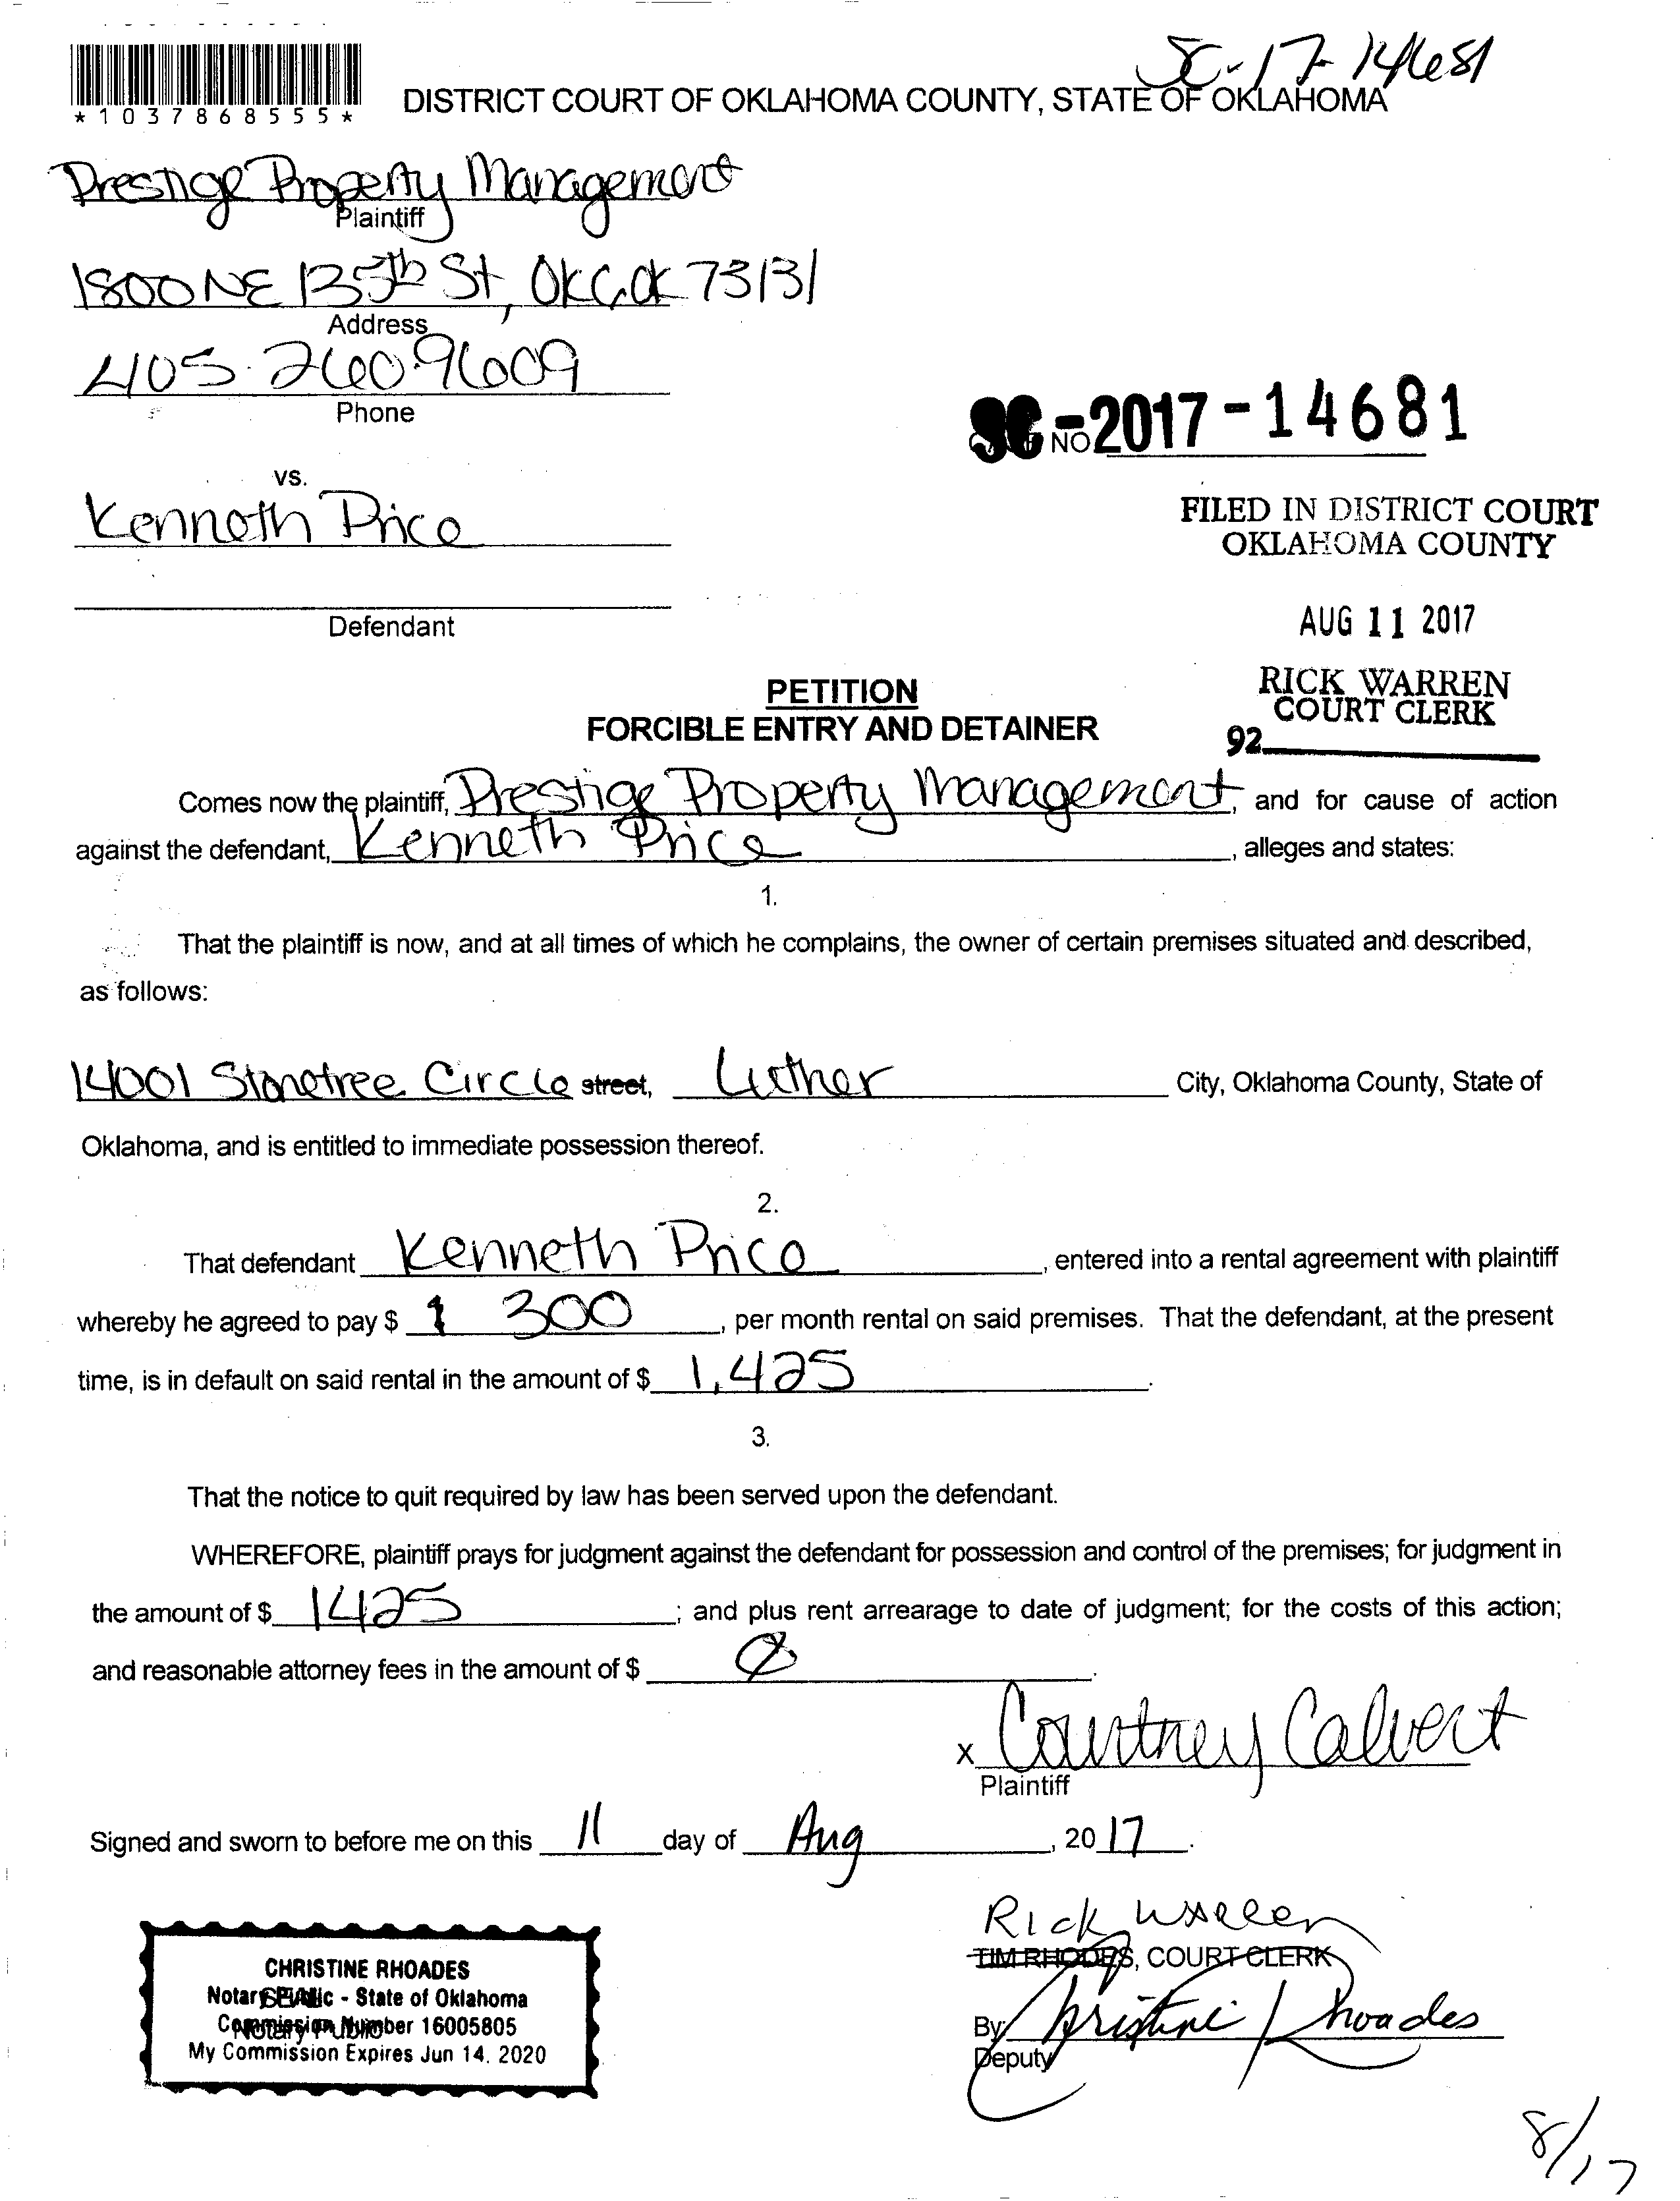 SC-17-14681
*1037868555*
DISTRICT COURT OF OKLAHOMA COUNTY, STATE OF OKLAHOMA
Prestige Property Management
Plaintiff
1800 NE 135th St, OKC, OK 73131
Address
405-260-9609
Phone
SC-2017-14681
NO
vs.
Kenneth Price
FILED IN DISTRICT COURT
OKLAHOMA COUNTY
Defendant
AUG 11 2017
RICK WARREN
COURT CLERK
92
PETITION
FORCIBLE ENTRY AND DETAINER
Comes now the plaintiff, Prestige Property Management, and for cause of action
against the defendant, Kenneth Price, alleges and states:
1.
That the plaintiff is now, and at all times of which he complains, the owner of certain premises situated and described,
as follows:
14001 Stonetree Circle street, Luther City, Oklahoma County, State of
Oklahoma, and is entitled to immediate possession thereof.
2.
That defendant Kenneth Price, entered into a rental agreement with plaintiff
whereby he agreed to pay $ 1300, per month rental on said premises. That the defendant, at the present
time, is in default on said rental in the amount of $ 1,425.
3.
That the notice to quit required by law has been served upon the defendant.
WHEREFORE, plaintiff prays for judgment against the defendant for possession and control of the premises; for judgment in
the amount of $ 1425; and plus rent arrearage to date of judgment; for the costs of this action;
and reasonable attorney fees in the amount of $ Ø.
x Courtney Calvert
Plaintiff
Signed and sworn to before me on this 11 day of Aug, 2017.
Rick Warren
TIM RHODES, COURT CLERK
By Christine Rhoades
Deputy
CHRISTINE RHOADES
Notary Public - State of Oklahoma
SEAL
Commission Number 16005805
Notary Public
My Commission Expires Jun 14, 2020
8/17